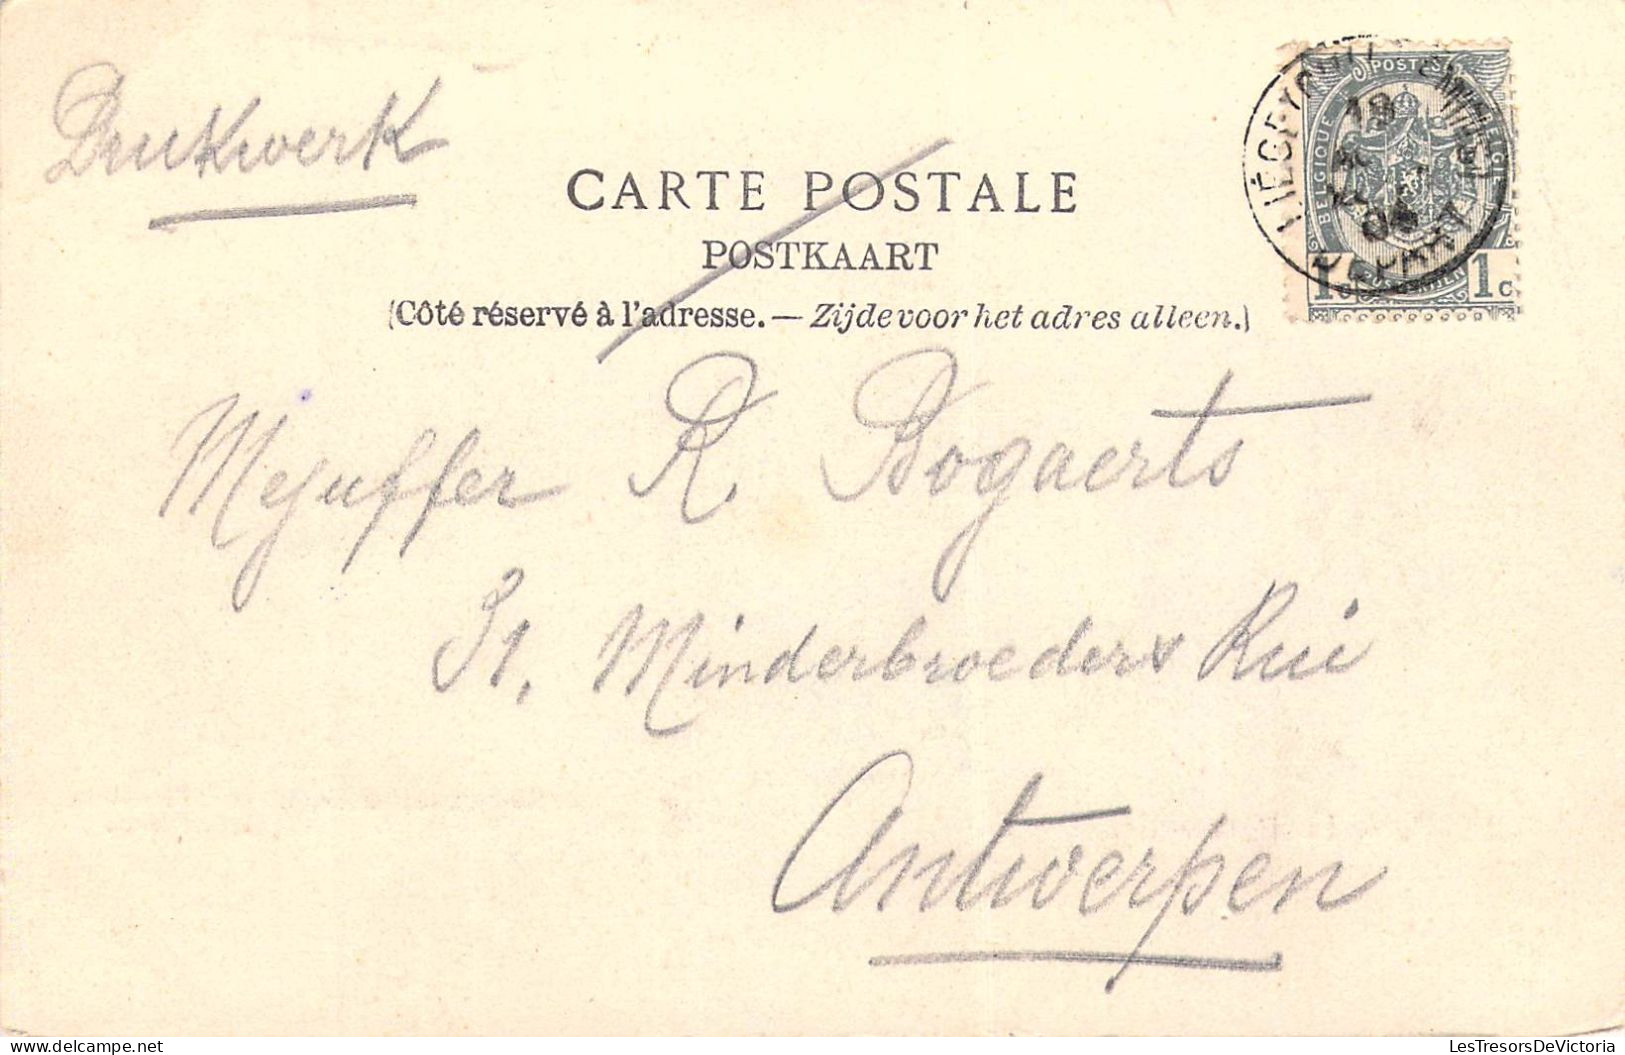 Drukwerk
CARTE POSTALE
POSTKAART
(Côté réservé à l'adresse. — Zijde voor het adres alleen.)
POSTES
BELGIQUE
1c 1c
LIÈGE
DEPART
Mejuffer R. Bogaerts
31, Minderbroeders Rui
Antwerpen
LesTresorsDeVictoria
www.delcampe.net